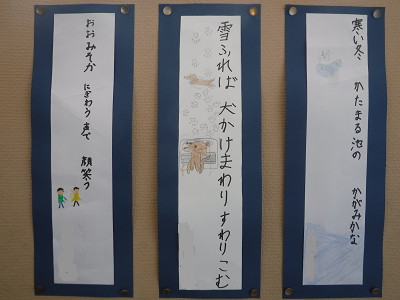 寒い冬 かたまる池の かがみかな
雪ふれば 犬かけまわり すわりこむ
おおみそか にぎわう声で 顔笑う